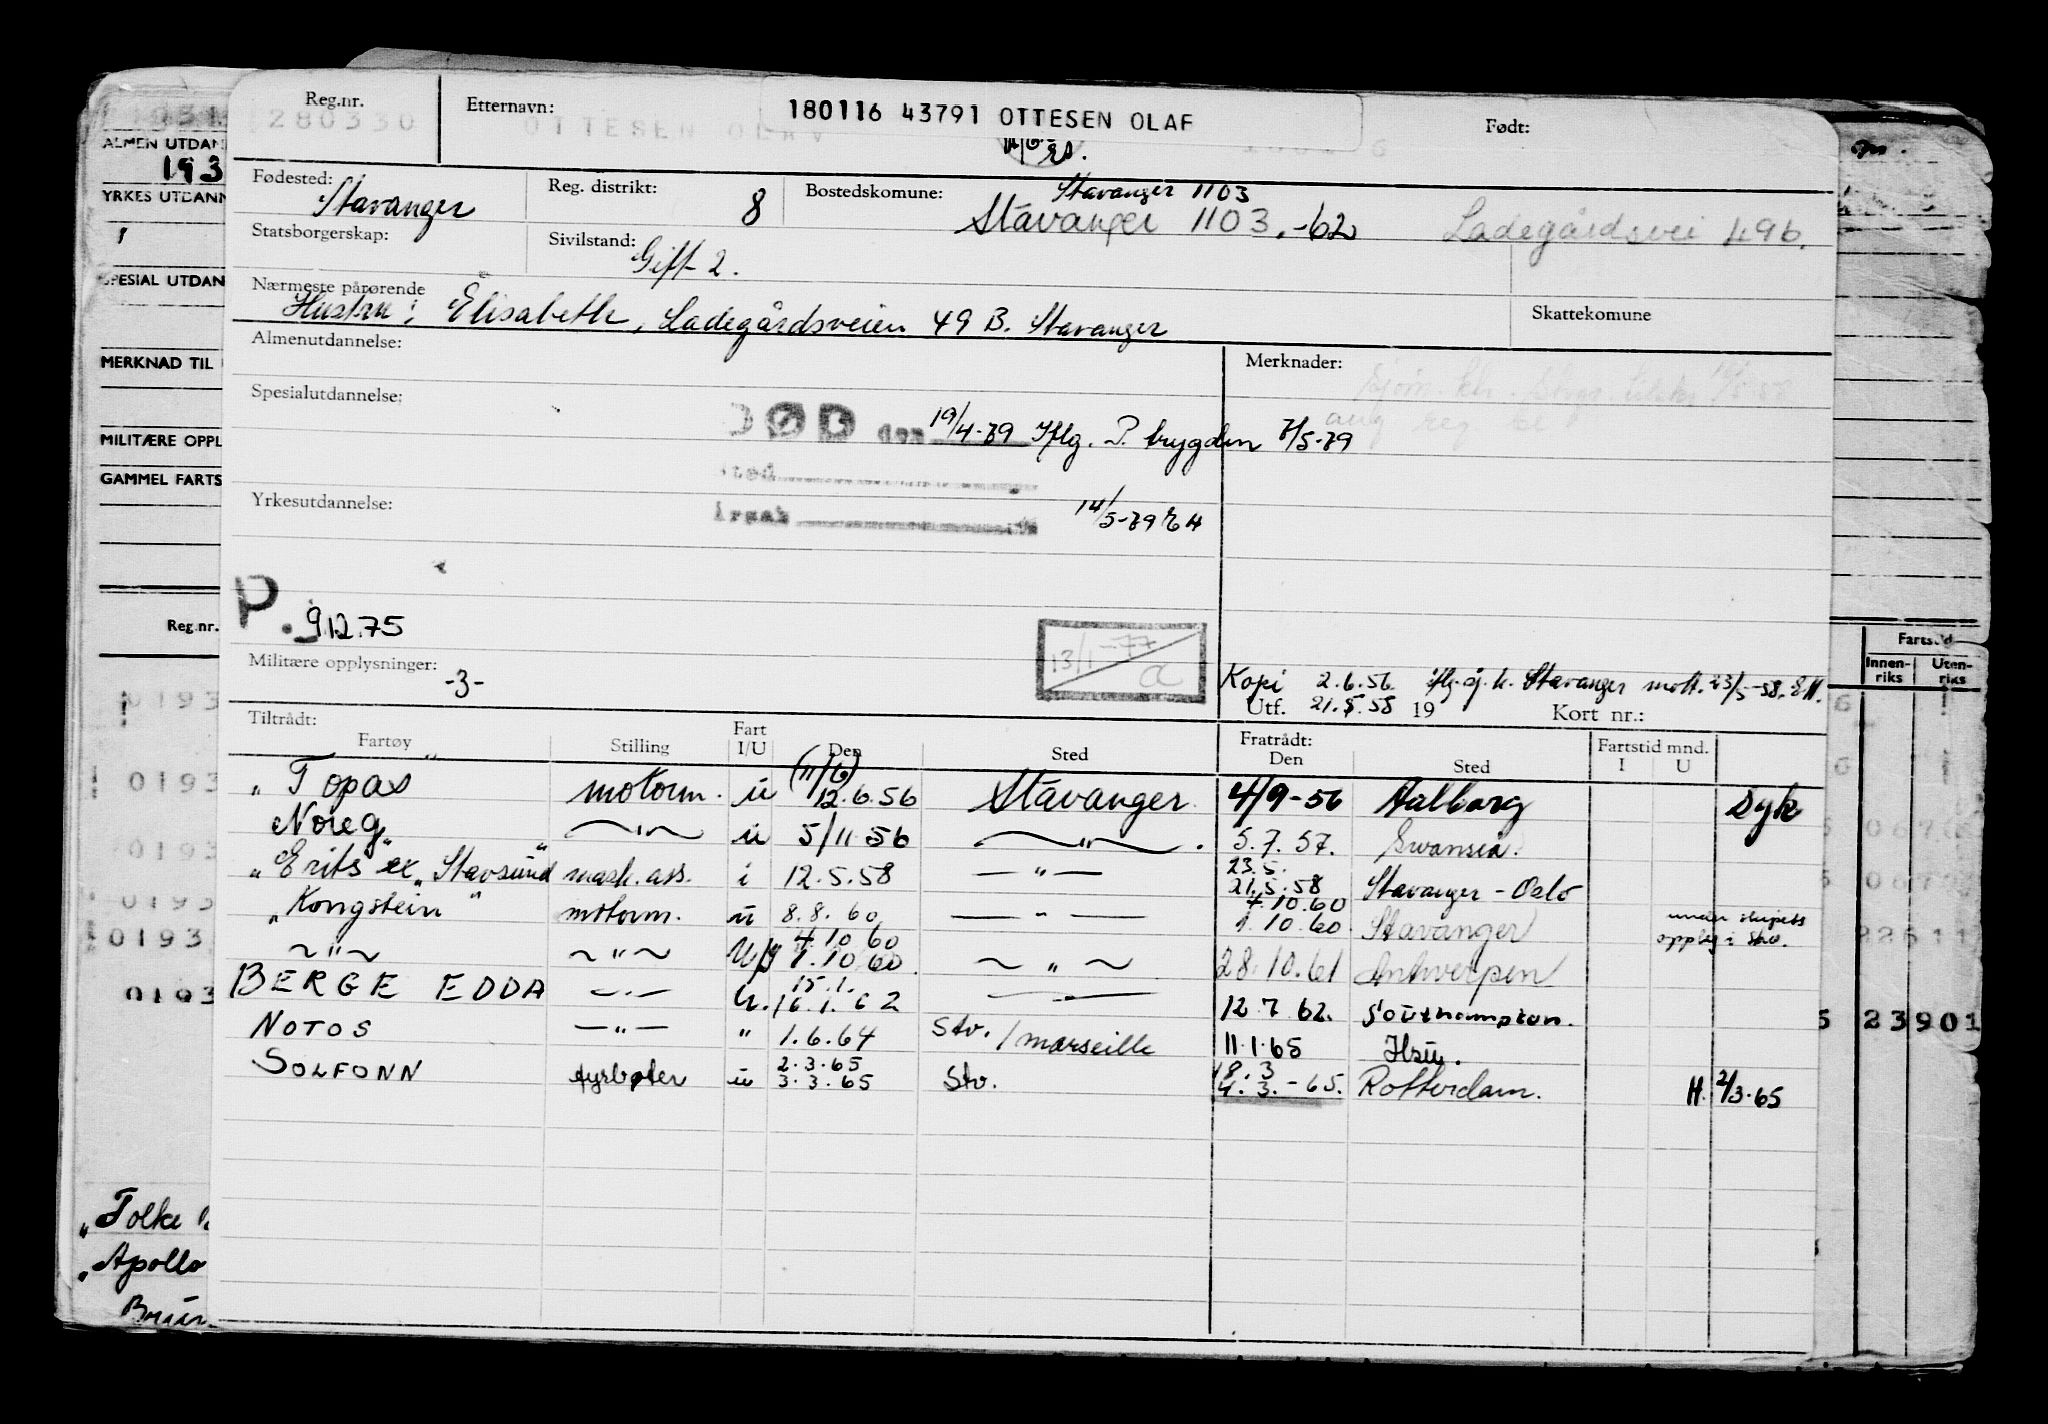 Reg.nr.
280330
Etternavn:
OTTESEN OLAV
180116 43791 OTTESEN OLAF
Født:
Fødested:
Stavanger
Reg. distrikt:
8
Bostedskomune:
Stavanger 1103
Stavanger 1103.-62
Ladegårdsvei 49b.
Statsborgerskap:
Sivilstand:
Gift 2.
Nærmeste pårørende
Hustru: Elisabeth, Ladegårdsveien 49 B. Stavanger
Skattekomune
Almenutdannelse:
Merknader:
Spesialutdannelse:
DØD den 19/4-79 Iflg. P. trygden 7/5-79
Sted
Årsak
14/5-79
Yrkesutdannelse:
P. 9.12.75
13/1-77
a
Militære opplysninger:
-3-
Kopi 2.6.56. iflg. sj. k. Stavanger mott. 23/5-58. EH.
Utf. 21.5.58 19 Kort nr.:
Tiltrådt:
Fartøy Stilling Fart I/U Den Sted
Fratrådt:
Den Sted Fartstid mnd. I U
"Topas motorm. u (11/6) 12.6.56 Stavanger 4/9-56 Aalborg Syk
Noreg" —"— u 5/11 56 —"—. 5.7.57. Swansea.
"Erits" ex "Stavsund" mask.ass. i 12.5.58 —"— 23.5. 21.5.58 Stavanger - Oslo
"Kongstein" motorm. u 8.8.60 —"— 4.10.60 1.10.60. Stavanger under skipets opplag i Stv.
—"— —"— U 4.10.60 1.10.60. —"— 28.10.61 Antwerpen
BERGE EDDA —"— U. 15.1. 16.1.62 —"— 12.7.62. Southampton.
NOTOS —"— " 1.6.64 Stv. / Marseille 11.1.65
SOLFONN fyrbøter u 2.3.65 3.3.65 Stv. 18.3 4.3.-65. Rotterdam. H. 2/3.65
ALMEN UTDAN
193
YRKES UTDANN
SPESIAL UTDAN
MERKNAD TIL
MILITÆRE OPPL
GAMMEL FARTS
Reg.nr.
0193
0193
0193
0193
0193
0193
"Tolke
"Apollo
Fartstid
Innen-riks
Uten-riks
23901